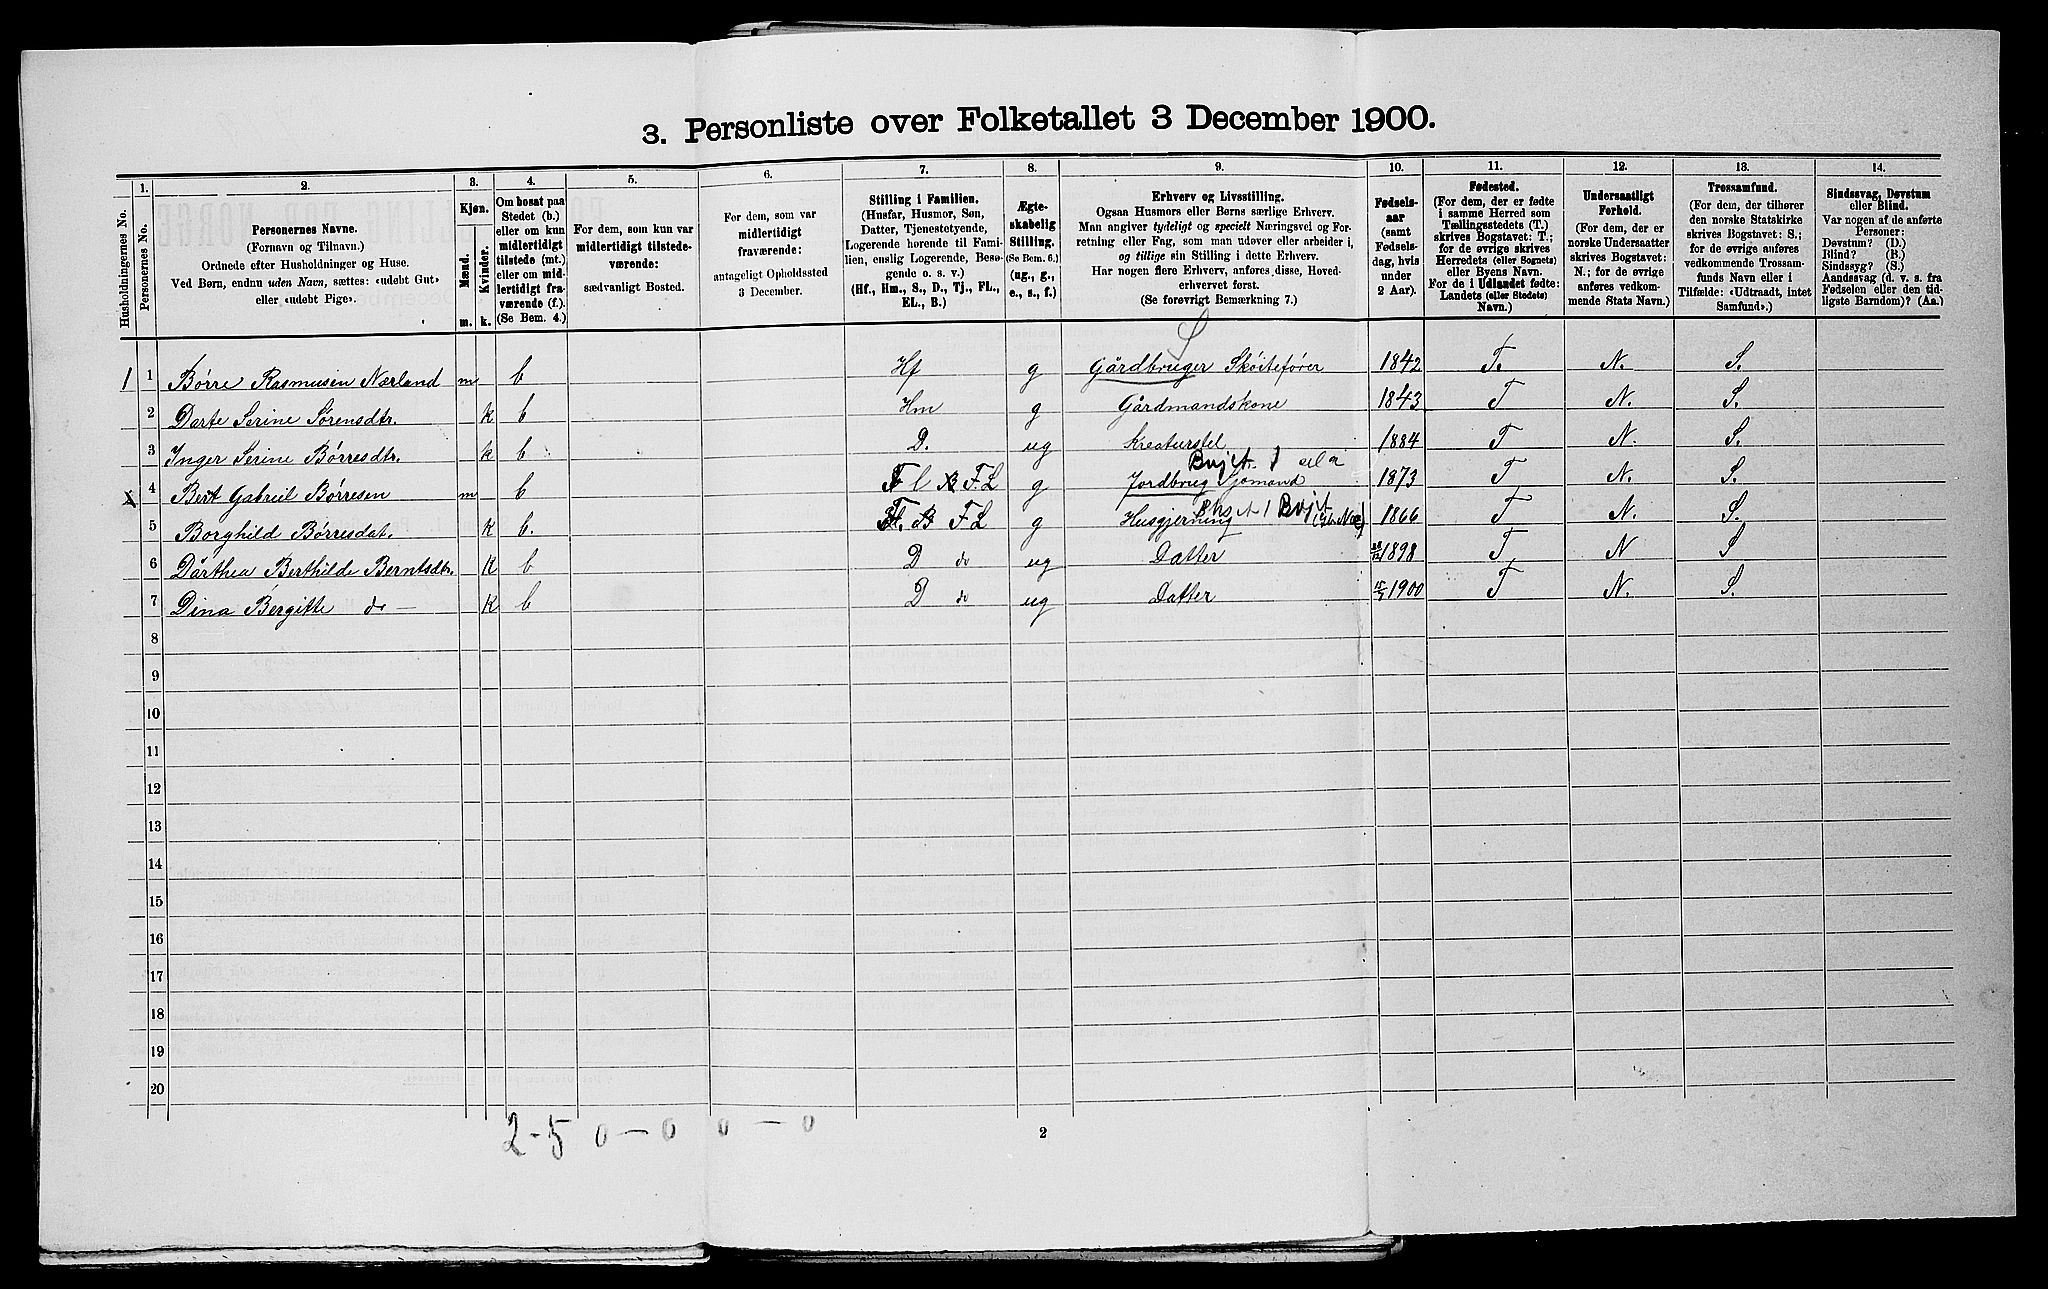 3. Personliste over Folketallet 3 December 1900.
Husholdningernes No.
1.
Personernes No.
2.
Personernes Navne.
(Fornavn og Tilnavn.)
Ordnede efter Husholdninger og Huse.
Ved Børn, endnu uden Navn, sættes: «udøbt Gut»
eller «udøbt Pige».
3.
Kjøn.
Mænd.
Kvinder.
m. k.
4.
Om bosat paa
Stedet (b.)
eller om kun
midlertidigt
tilstede (mt.)
eller om mid-
lertidigt fra-
værende (f.).
(Se Bem. 4.)
5.
For dem, som kun var
midlertidigt tilstede-
værende:
sædvanligt Bosted.
6.
For dem, som var
midlertidigt
fraværende:
antageligt Opholdssted
3 December.
7.
Stilling i Familien.
(Husfar, Husmor, Søn,
Datter, Tjenestetyende,
Logerende hørende til Fami-
lien, enslig Logerende, Besø-
gende o. s. v.)
(Hf., Hm., S., D., Tj., FL.,
EL., B.)
8.
Ægte-
skabelig
Stilling.
(Se Bem. 6.)
(ug., g.,
e., s., f.)
9.
Erhverv og Livsstilling.
Ogsaa Husmors eller Børns særlige Erhverv.
Man angiver tydeligt og specielt Næringsvei og For-
retning eller Fag, som man udøver eller arbeider i,
og tillige sin Stilling i dette Erhverv.
Har nogen flere Erhverv, anføres disse, Hoved-
erhvervet først.
(Se forøvrigt Bemærkning 7.)
10.
Fødsels-
aar
(samt
Fødsels-
dag, hvis
under
2 Aar).
11.
Fødested.
(For dem, der er fødte
i samme Herred som
Tællingsstedets (T.)
skrives Bogstavet: T.;
for de øvrige skrives
Herredets (eller Sognets)
eller Byens Navn.
For de i Udlandet fødte:
Landets (eller Stedets)
Navn.)
12.
Undersaatligt
Forhold.
(For dem, der er
norske Undersaatter
skrives Bogstavet:
N.; for de øvrige
anføres vedkom-
mende Stats Navn.)
13.
Trossamfund.
(For dem, der tilhører
den norske Statskirke
skrives Bogstavet: S.;
for de øvrige anføres
vedkommende Trossam-
funds Navn eller i
Tilfælde: «Udtraadt, intet
Samfund».)
14.
Sindssvag, Døvstum
eller Blind.
Var nogen af de anførte
Personer:
Døvstum? (D.)
Blind? (B.)
Sindssyg? (S.)
Aandssvag (d. v. s. fra
Fødselen eller den tid-
ligste Barndom)? (Aa.)
S
1 1 Børre Rasmusen Nærland m b Hf g Gårdbruger Skøitefører 1842 T. N. S.
2 Darte Serine Sørensdtr. k b Hm g Gårdmandskone 1843 T N. S.
3 Inger Serine Børresdtr. k b D. ug Kreaturstel 1884 T N. S.
Bujet. 1
x 4 Bert Gabriel Børresen m b Fl B F.L g Jordbrug Sjømand 1873 T N. S.
1 Bujet
5 Borghild Børresdat. k b. B F L g Husgjerning 1866 T N. S.
6 Dårthea Berthilde Berntsdtr. k b D do ug Datter 1898 T N S
7 Dina Bergitte do — k b D do ug Datter 1900 T N. S.
8
9
10
11
12
13
14
15
16
17
18
19
20
2-5 0-0 0-0
2